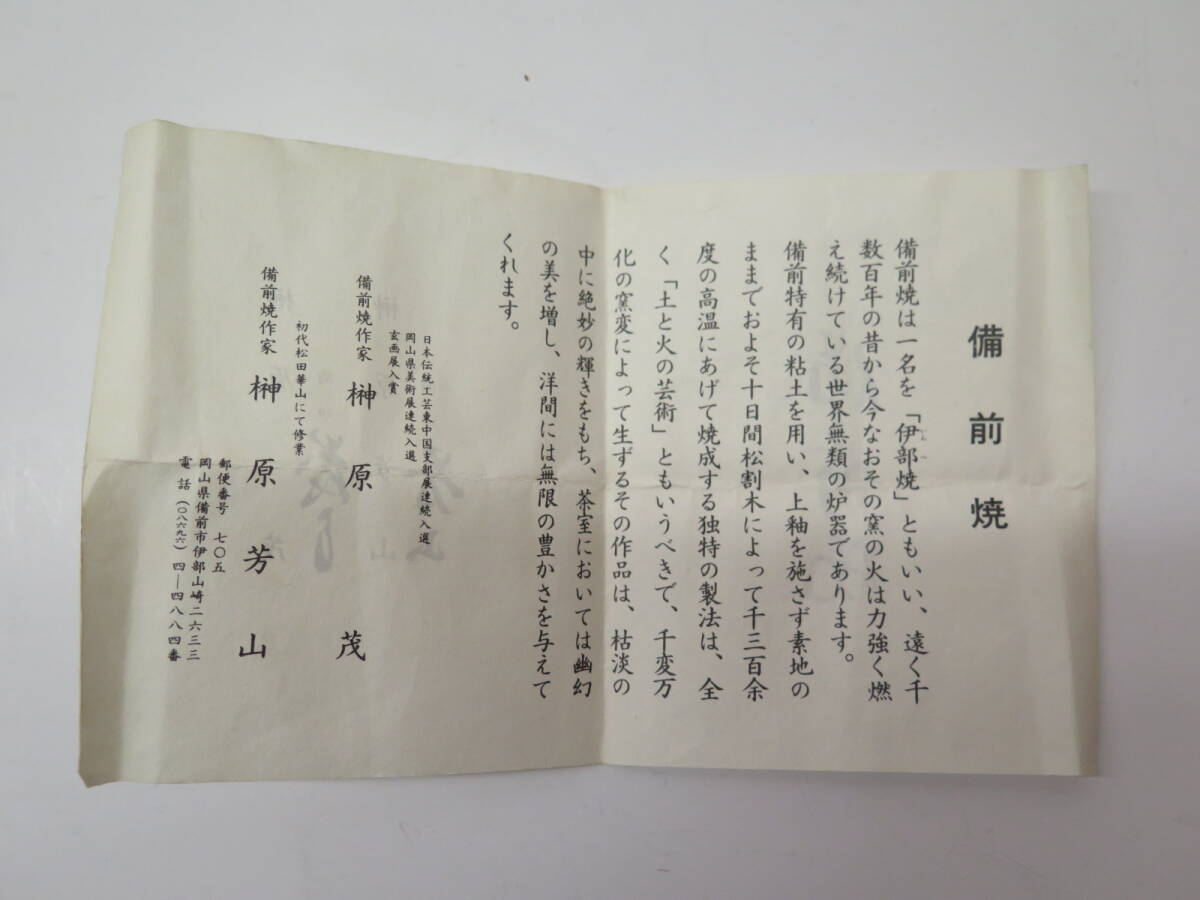 備前焼
備前焼は一名を「伊部焼」ともいい、遠く千
数百年の昔から今なおその窯の火は力強く燃
え続けている世界無類の炉器であります。
備前特有の粘土を用い、上釉を施さず素地の
ままでおよそ十日間松割木によって千三百余
度の高温にあげて焼成する独特の製法は、全
く「土と火の芸術」ともいうべきで、千変万
化の窯変によって生ずるその作品は、枯淡の
中に絶妙の輝きをもち、茶室においては幽幻
の美を増し、洋間には無限の豊かさを与えて
くれます。
日本伝統工芸東中国支部展連続入選
岡山県美術展連続入選
玄画展入賞
備前焼作家 榊原 茂
初代松田華山にて修業
備前焼作家 榊原芳山
郵便番号 七〇五
岡山県備前市伊部山崎二六三三
電話(〇八六九六)四―四八八四番